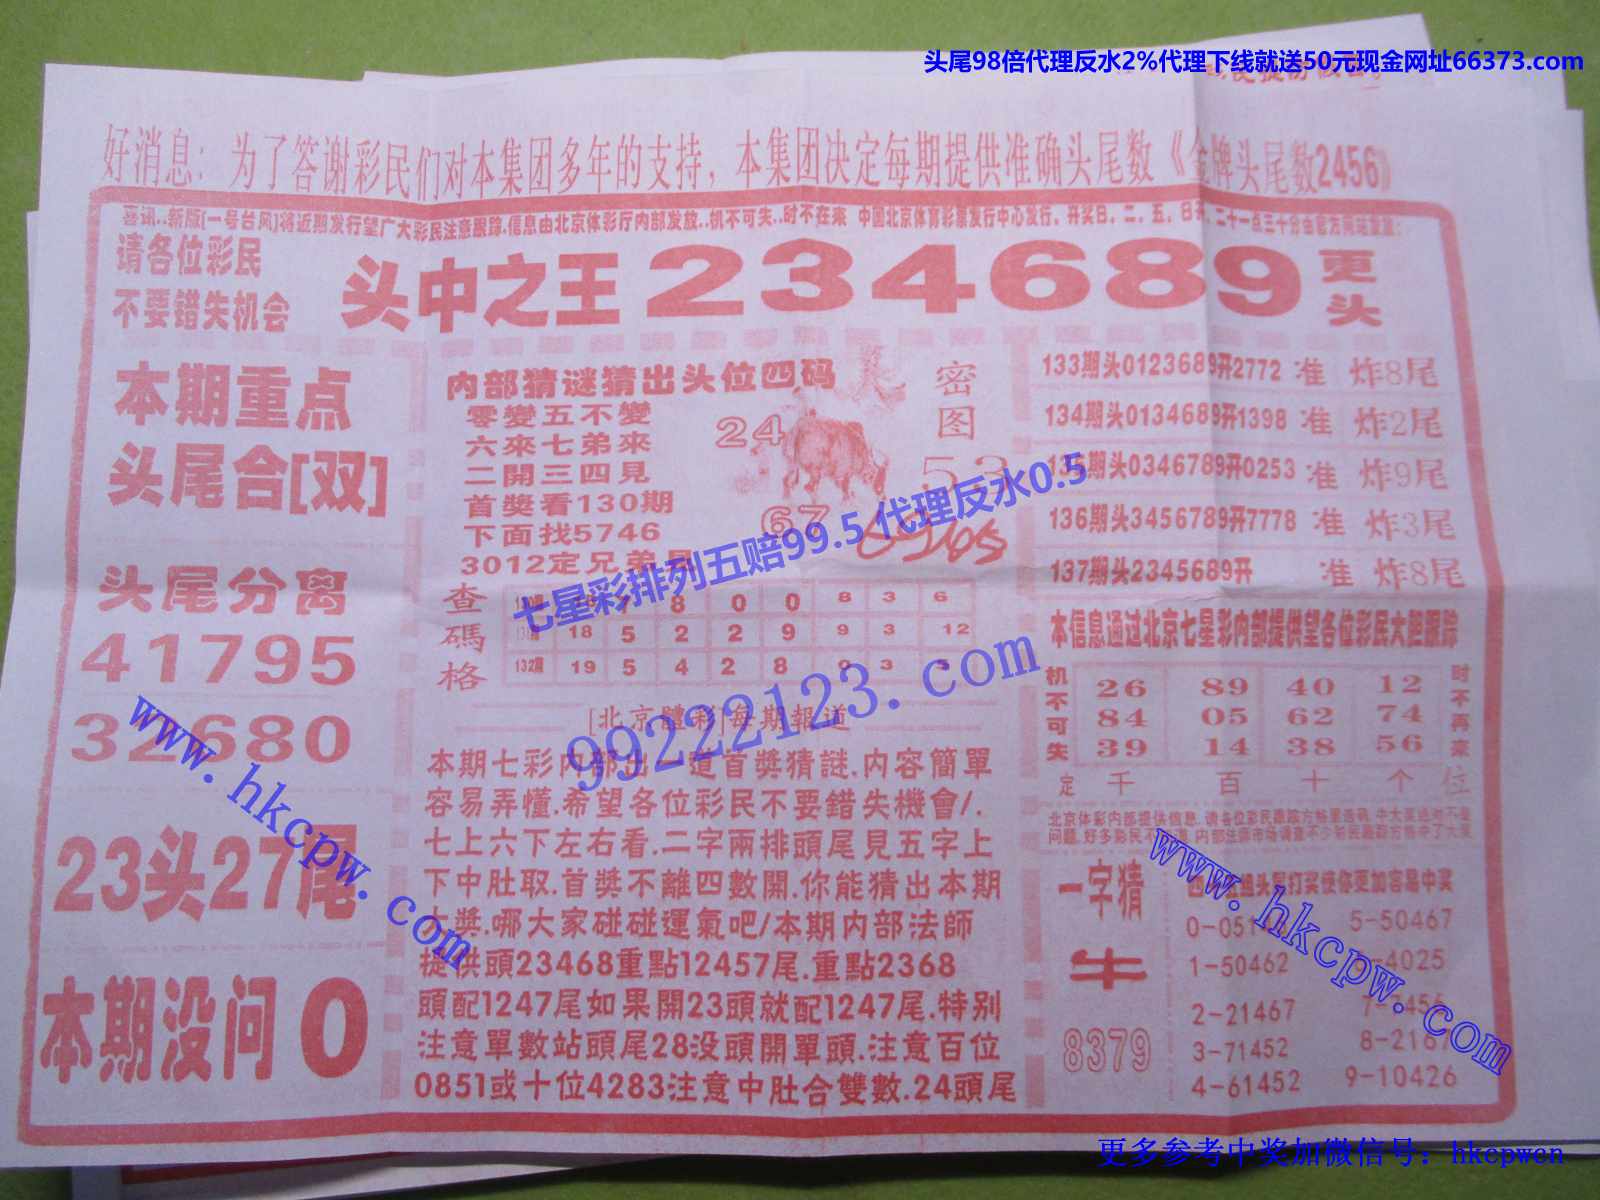 头尾98倍代理反水2%代理下线就送50元现金网址66373.com
好消息：为了答谢彩民们对本集团多年的支持，本集团决定每期提供准确头尾数《金牌头尾数2456》
喜讯..新版[一号台风]将近期发行望广大彩民注意跟踪.信息由北京体彩厅内部发放..机不可失..时不在来 中国北京体育彩票发行中心发行，开奖日，二，五，日开，二十一点三十分由官方网站发重：
请各位彩民
不要错失机会
头中之王 234689 更头
本期重点
头尾合[双]
头尾分离
41795
32680
23头27尾
本期没问0
内部猜谜猜出头位四码
零變五不變
六來七弟來
二開三四見
首獎看130期
下面找5746
3012定兄弟見
密图
24
53
67
七星彩排列五赔99.5 代理反水0.5
查碼格
7 8 0 0 8 3 6
18 5 2 2 9 9 3 12
132期 19 5 4 2 8 0 3
[北京體彩]每期報道
99222123.com
本期七彩内部出一道首獎猜謎.内容簡單
容易弄懂.希望各位彩民不要錯失機會/.
七上六下左右看.二字兩排頭尾見五字上
下中肚取.首獎不離四數開.你能猜出本期
大獎.哪大家碰碰運氣吧/本期内部法師
提供頭23468重點12457尾.重點2368
頭配1247尾如果開23頭就配1247尾.特别
注意單數站頭尾28没頭開單頭.注意百位
0851或十位4283注意中肚合雙數.24頭尾
133期头0123689开2772 准 炸8尾
134期头0134689开1398 准 炸2尾
135期头0346789开0253 准 炸9尾
136期头3456789开7778 准 炸3尾
137期头2345689开 准 炸8尾
本信息通过北京七星彩内部提供望各位彩民大胆跟踪
机不可失
26 89 40 12
84 05 62 74
39 14 38 56
时不再来
定 千 百 十 个 位
一字猜
牛
8379
头尾打奖使你更加容易中奖
5-50467
1-50462
4025
2-21467
3-71452
4-61452 9-10426
www.hkcpw.com
www.hkcpw.com
更多参考中奖加微信号：hkcpwcn